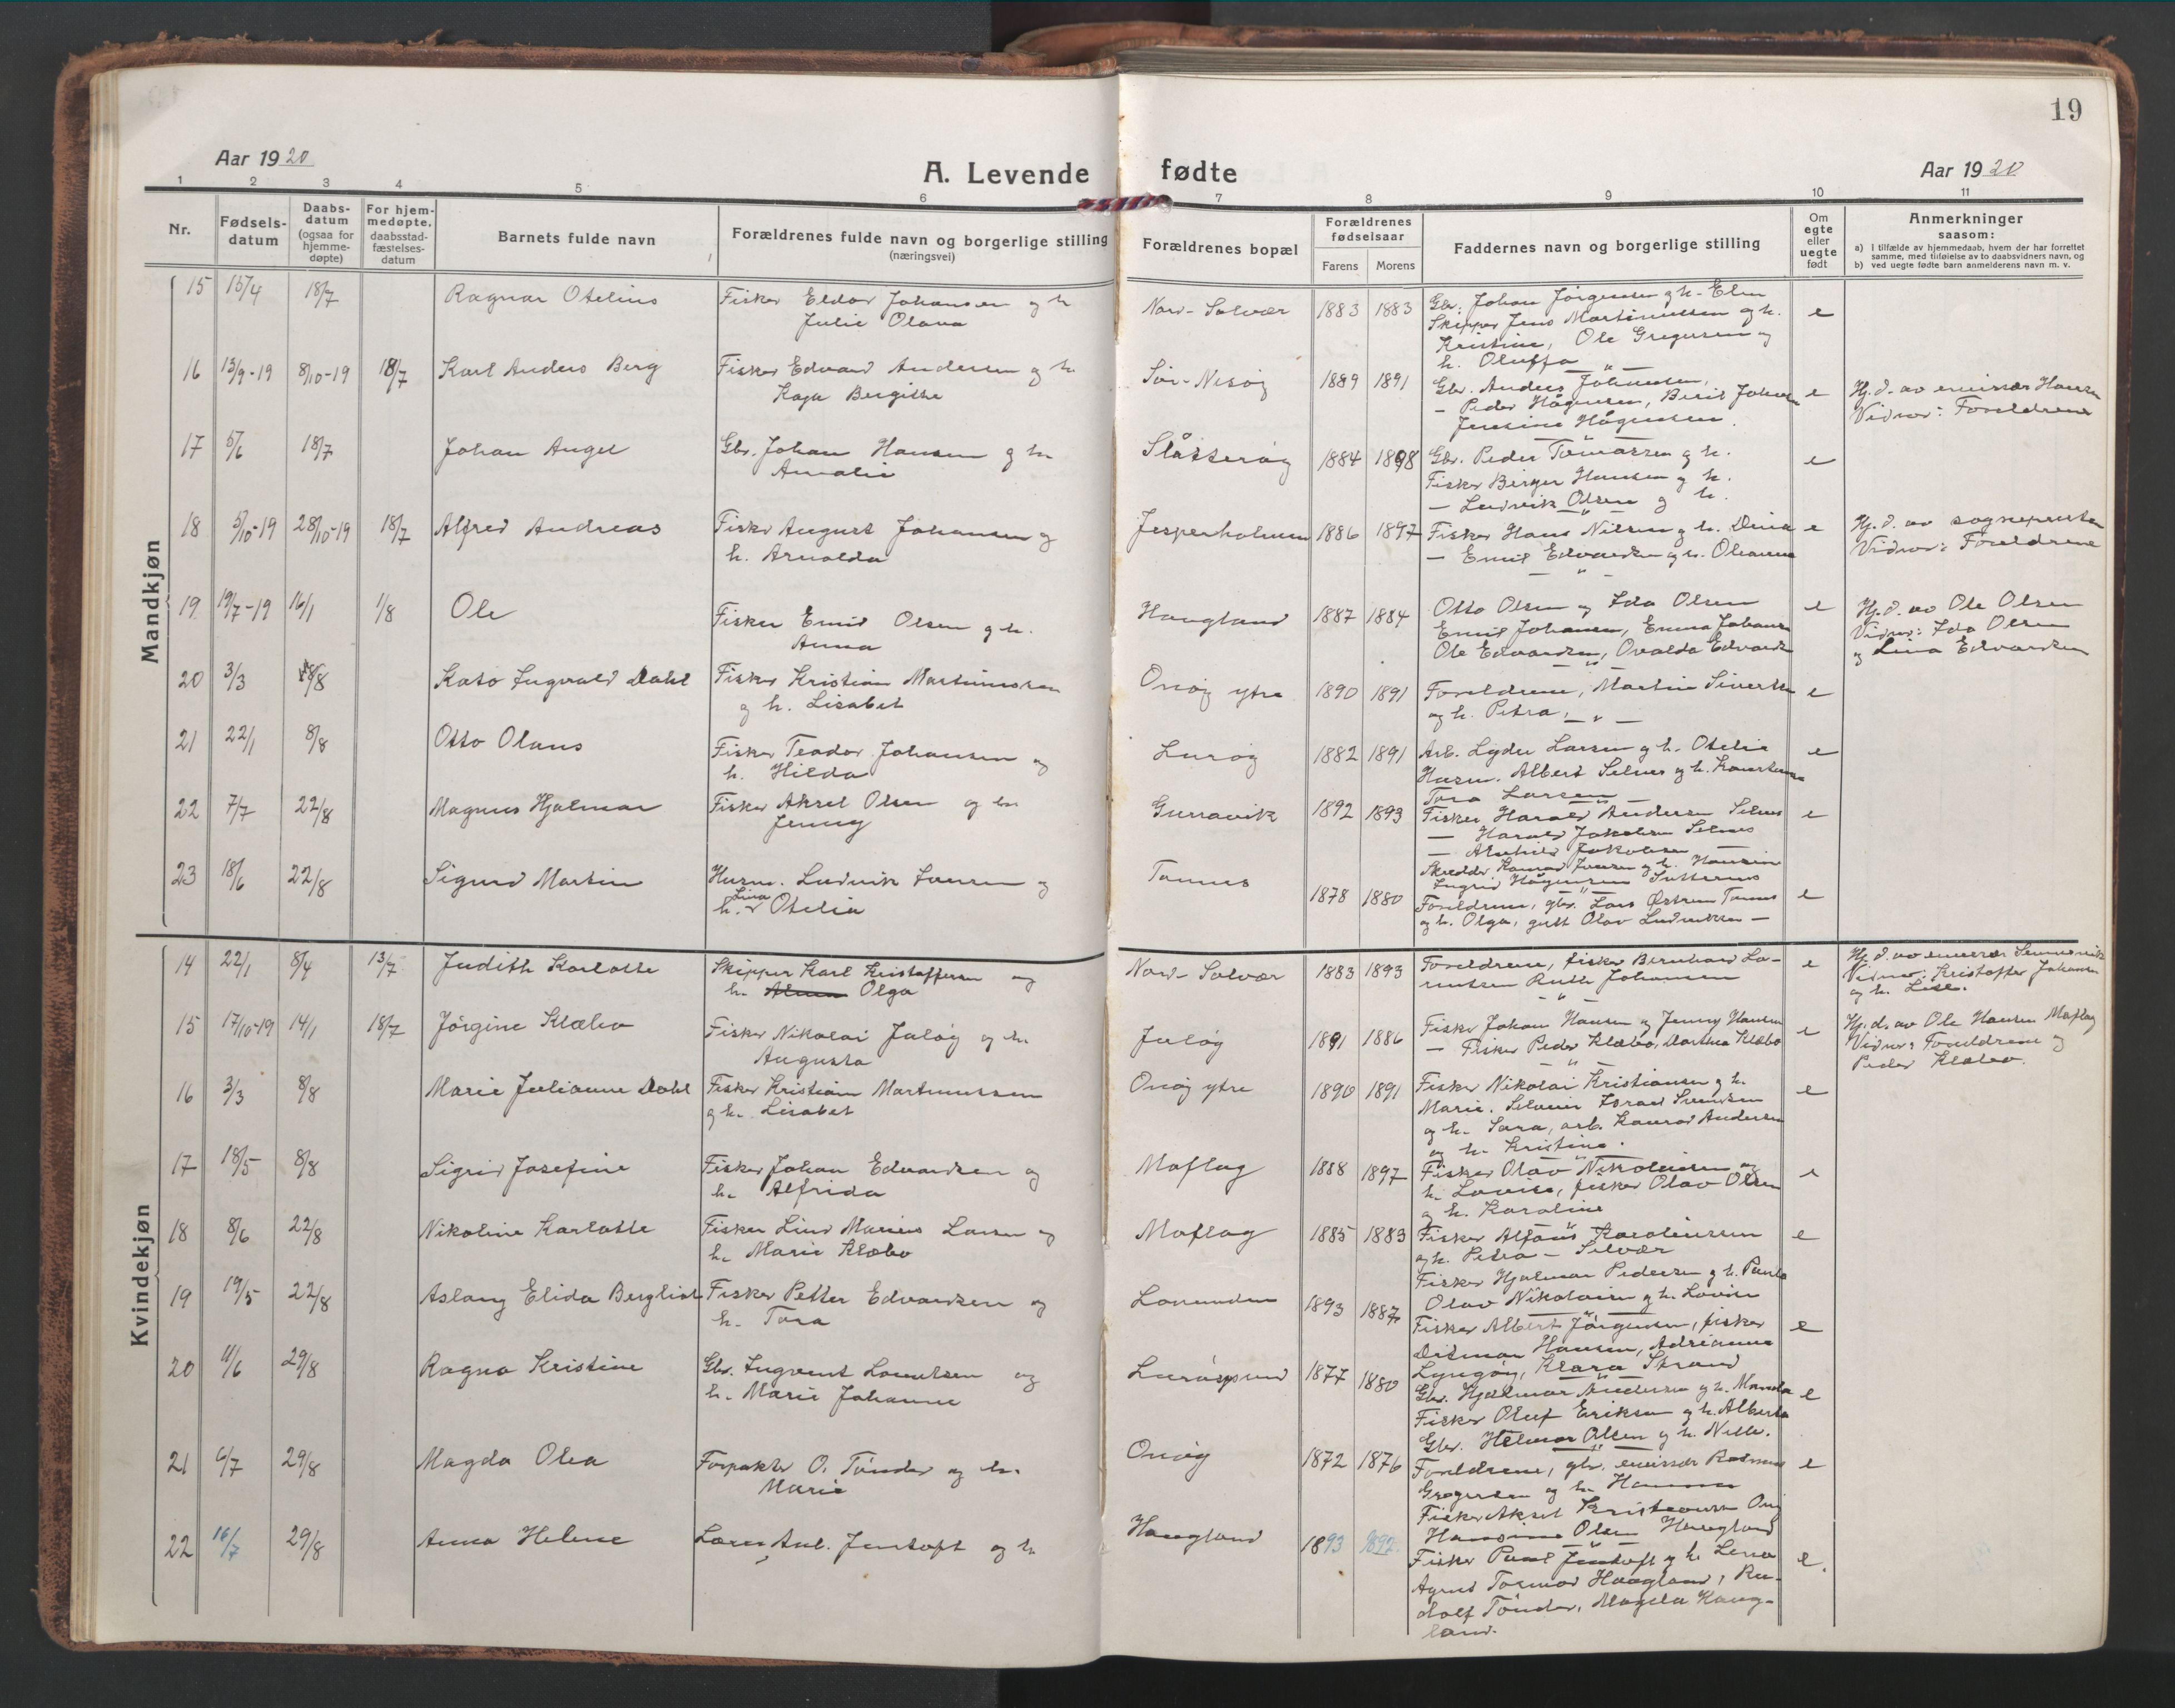 19
Aar 1920
A. Levende fødte
Aar 1920
1 2 3 4 5 6 7 8 9 10 11
Nr.
Fødsels-
datum
Daabs-
datum
(ogsaa for
hjemme-
døpte)
For hjem-
medøpte,
daabsstad-
fæstelses-
datum
Barnets fulde navn
Forældrenes fulde navn og borgerlige stilling
(næringsvei)
Forældrenes bopæl
Forældrenes
fødselsaar
Farens Morens
Faddernes navn og borgerlige stilling
Om
egte
eller
uegte
født
Anmerkninger
saasom:
a) i tilfælde av hjemmedaab, hvem der har forrettet
samme, med tilføielse av to daabsvidners navn, og
b) ved uegte fødte barn anmelderens navn m. v.
Mandkjøn
15 15/4 18/7 Ragnar Otelius
Fisker Eldor Johansen og h
Julie Olava
Nord-Solvær 1883 1883
Gbr. Johan Jörgensen og h. Elen
Skipper Jens Martinussen og h.
Kristine, Ole Gregersen og
h. Oluffa
e
16 13/9-19 8/10-19 18/7 Karl Anders Berg
Fisker Edvard Andersen og h
Kaja Bergitte
Sör-Nesöy 1889 1891
Gbr. Anders Johansen,
- Peder Hågensen, Berit Johansen
Jensine Hågensen.
e
Hj. d. av emissær Hansen
Vidner: Foreldrene
17 5/6 18/7 Johan Angel
Gbr. Johan Hansen og h
Amalie
Slåtteröy 1884 1898
Gbr. Peder Tomassen og h.
Fisker Birger Hansen og h.
- Ludvik Olsen og h.
e
18 5/10-19 28/10-19 18/7 Alfred Andreas
Fisker August Johansen og
h. Arnolda
Jesperholmen 1886 1897
Fisker Hans Nilsen og h. Dina
- Emil Edvardsen og h. Oleanna
e
Hj. d. av sognepresten
Vidner: Foreldrene
19 19/7-19 16/1 1/8 Ole
Fisker Emil Olsen og h.
Anna
Haugland 1887 1884
Otto Olsen og Ida Olsen
Emil Johansen, Emma Johansen
Ole Edvardsen, Ovalda Edvards
e
Hj. d. av Ole Olsen
Vidner: Ida Olsen
og Lina Edvardsen
20 3/3 8/8 Kato Ingvald Dahl
Fisker Kristian Martinussen
og h. Lisabet
Onöy ytre 1890 1891
Foreldrene, Martin Sivertsen
og h. Petra,
e
21 22/1 8/8 Otto Olaus
Fisker Teodor Johansen og
h. Hilda
Luröy 1882 1891
Arb. Lyder Larsen og h. Otelie
Husm. Albert Selnes og h.
Tora Larsen
e
22 7/7 22/8 Magnus Hjalmar
Fisker Aksel Olsen og h
Jenny
Gurravik 1892 1893
Fisker Harald Andersen Selnes
- Harald Jakobsen Selnes
e
23 18/6 22/8 Sigurd Martin
Husm. Ludvik Larsen og
h. Lina Otelia
Tonnes 1878 1880
Skredder Konrad Jensen og h. Hansine
Ingrid Hågensen
Foreldrene, gbr. Lars Östrem Tonnes
og h. Olga, gutt Olav Ludviksen -
e
Kvindekjøn
14 22/1 8/4 13/7 Judith Karlotte
Skipper Karl Kristoffersen og
h. Olga
Nord-Solvær 1883 1893
Foreldrene, fisker Bernhard Lo-
rentsen Ruth Johansen
e
Hj. d. av emissær
Vidner: Kristoffer Johansen
og h. Lise.
15 17/10-19 14/1 18/7 Jörgine Klæbo
Fisker Nikolai Julöy og h.
Augusta
Julöy 1891 1886
Fisker Johan Hansen og Jenny Hansen
- Fisker Peder Klæbo, Dorthea Klæbo
e
Hj. d. av Ole Hansen Moflag
Vidner: Foreldrene og
Peder Klæbo.
16 3/3 8/8 Marie Julianne Dahl
Fisker Kristian Martinussen
og h. Lisabet
Onöy ytre 1890 1891
Fisker Nikolai Kristiansen og h.
Marie. Israel Svendsen
og h. Sara, arb. Konrad Andersen
og h. Kristine.
e
17 18/5 8/8 Sigrid Josefine
Fisker Johan Edvardsen og
h. Alfrida
Moflag 1888 1897
Fisker Olav Nikolaisen og
h. Lovise, fisker Olav Olsen
og h. Karoline
e
18 8/6 22/8 Nikoline Karlotte
Fisker Lind Marius Larsen og
h. Marie Klæbo
Moflag 1885 1883
Fisker Alfons Karoliussen
og h. Petra - Selvær
Fisker Hjalmar Pedersen og h. Paula
Olav Nikolaisen og h. Lovise
e
19 19/5 22/8 Aslaug Elida Bergliot
Fisker Petter Edvardsen og
h. Tora
Lovunden 1893 1887
Fisker Albert Jörgensen, fisker
Ditman Hansen, Adrianna
Lyngöy, Klara Strand
e
20 11/6 29/8 Ragna Kristine
Gbr. Ingvart Lorentsen og
h. Marie Johanne
Luröysund 1877 1880
Gbr. Hjalmar Andersen og h. Manda
Fisker Oluf Eriksen og h. Alberta
Gbr. Helmer Olsen og h. Nelle.
e
21 6/7 29/8 Magda Olea
Forpakter O. Tönder og h.
Marie
Onöy 1872 1876
Foreldrene, gbr. emissær Rasmus
Gregersen og h. Hanna
Fisker Aksel Kristiansen Onöy
Hansine Olsen Haugland
e
22 16/7 29/8 Anna Helene
Lærer Anl. Jentoft og h
Haugland 1893 1892
Fisker Paul Jentoft og h. Lena
Agnes Tormod Haugland, Ru-
dolf Tönder, Magda Haug-
land.
e.